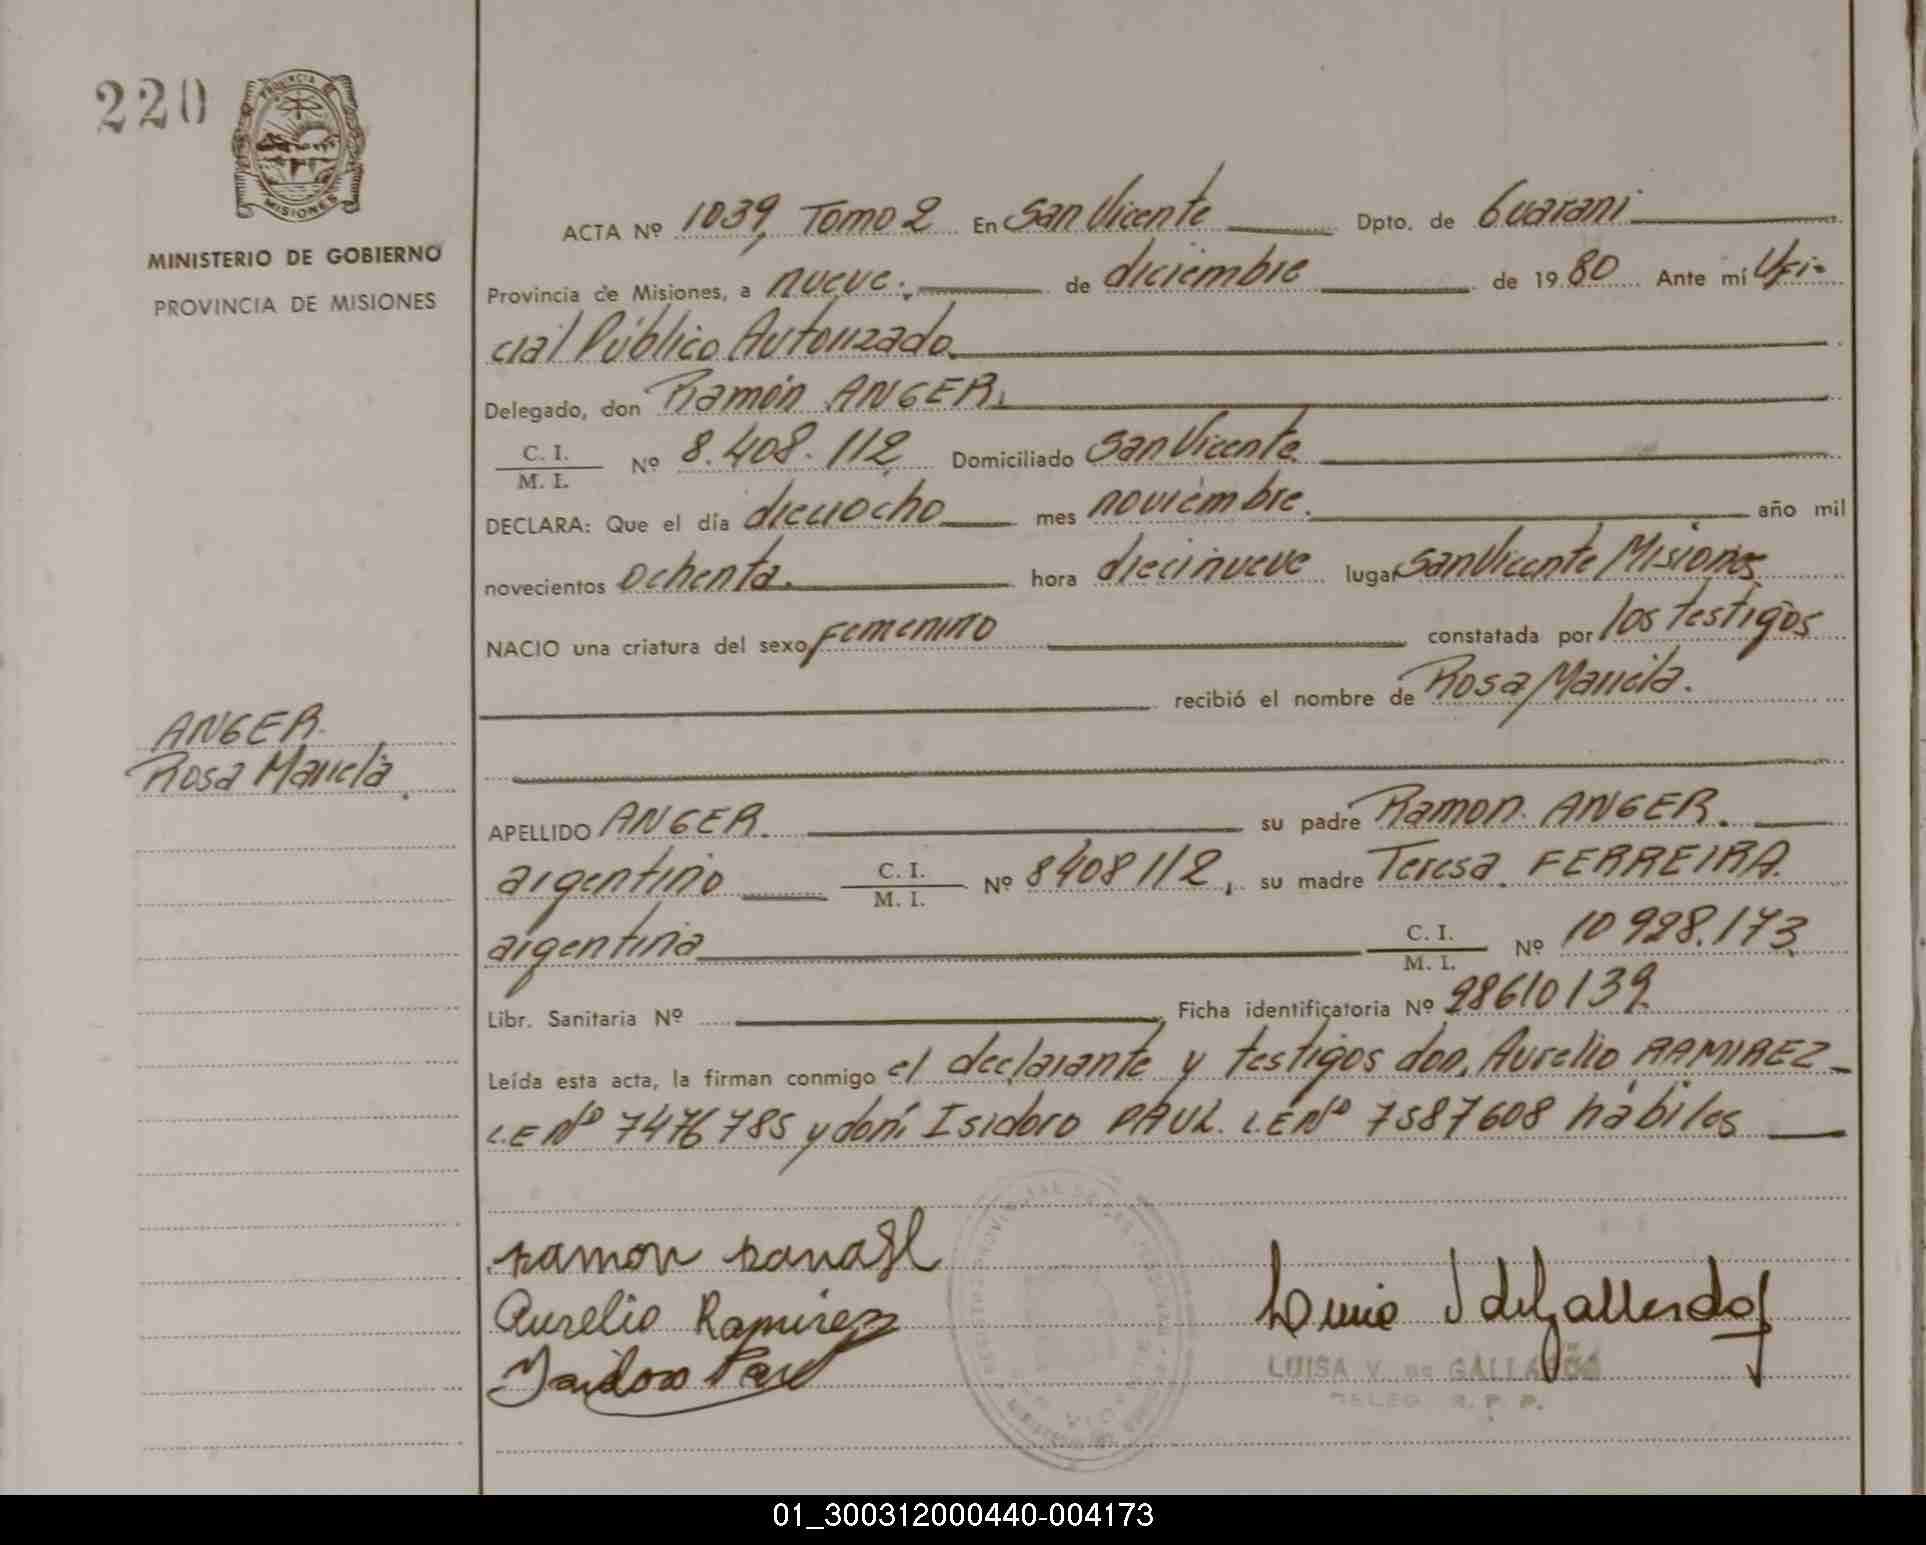 220
PROVINCIA DE
MISIONES
MINISTERIO DE GOBIERNO
PROVINCIA DE MISIONES
ACTA Nº 1039, Tomo 2 En San Vicente Dpto. de Guarani
Provincia de Misiones, a nueve. de diciembre de 1980 Ante mí Ofi-
cial Público Autorizado
Delegado, don Ramón ANGER.
C. I.
M. I. Nº 8.408.112 Domiciliado San Vicente
DECLARA: Que el día dieciocho mes noviembre. año mil
novecientos ochenta. hora diecinueve lugar San Vicente Misiones
NACIO una criatura del sexo femenino constatada por los testigos
recibió el nombre de Rosa Mariela.
ANGER.
Rosa Mariela.
APELLIDO ANGER. su padre Ramon ANGER.
argentino C. I. M. I. Nº 8408112, su madre Teresa FERREIRA.
argentina C. I. M. I. Nº 10928.173
Libr. Sanitaria Nº Ficha identificatoria Nº 98610139
Leída esta acta, la firman conmigo el declarante y testigos don Aurelio RAMIREZ
L.E Nº 7476785 y don Isidoro PAUL L.E Nº 7587608 hábiles
Ramon
Aurelio Ramirez
Isidoro Paul
LUISA V. de GALLARDO
DELEG. R. P. P.
01_300312000440-004173